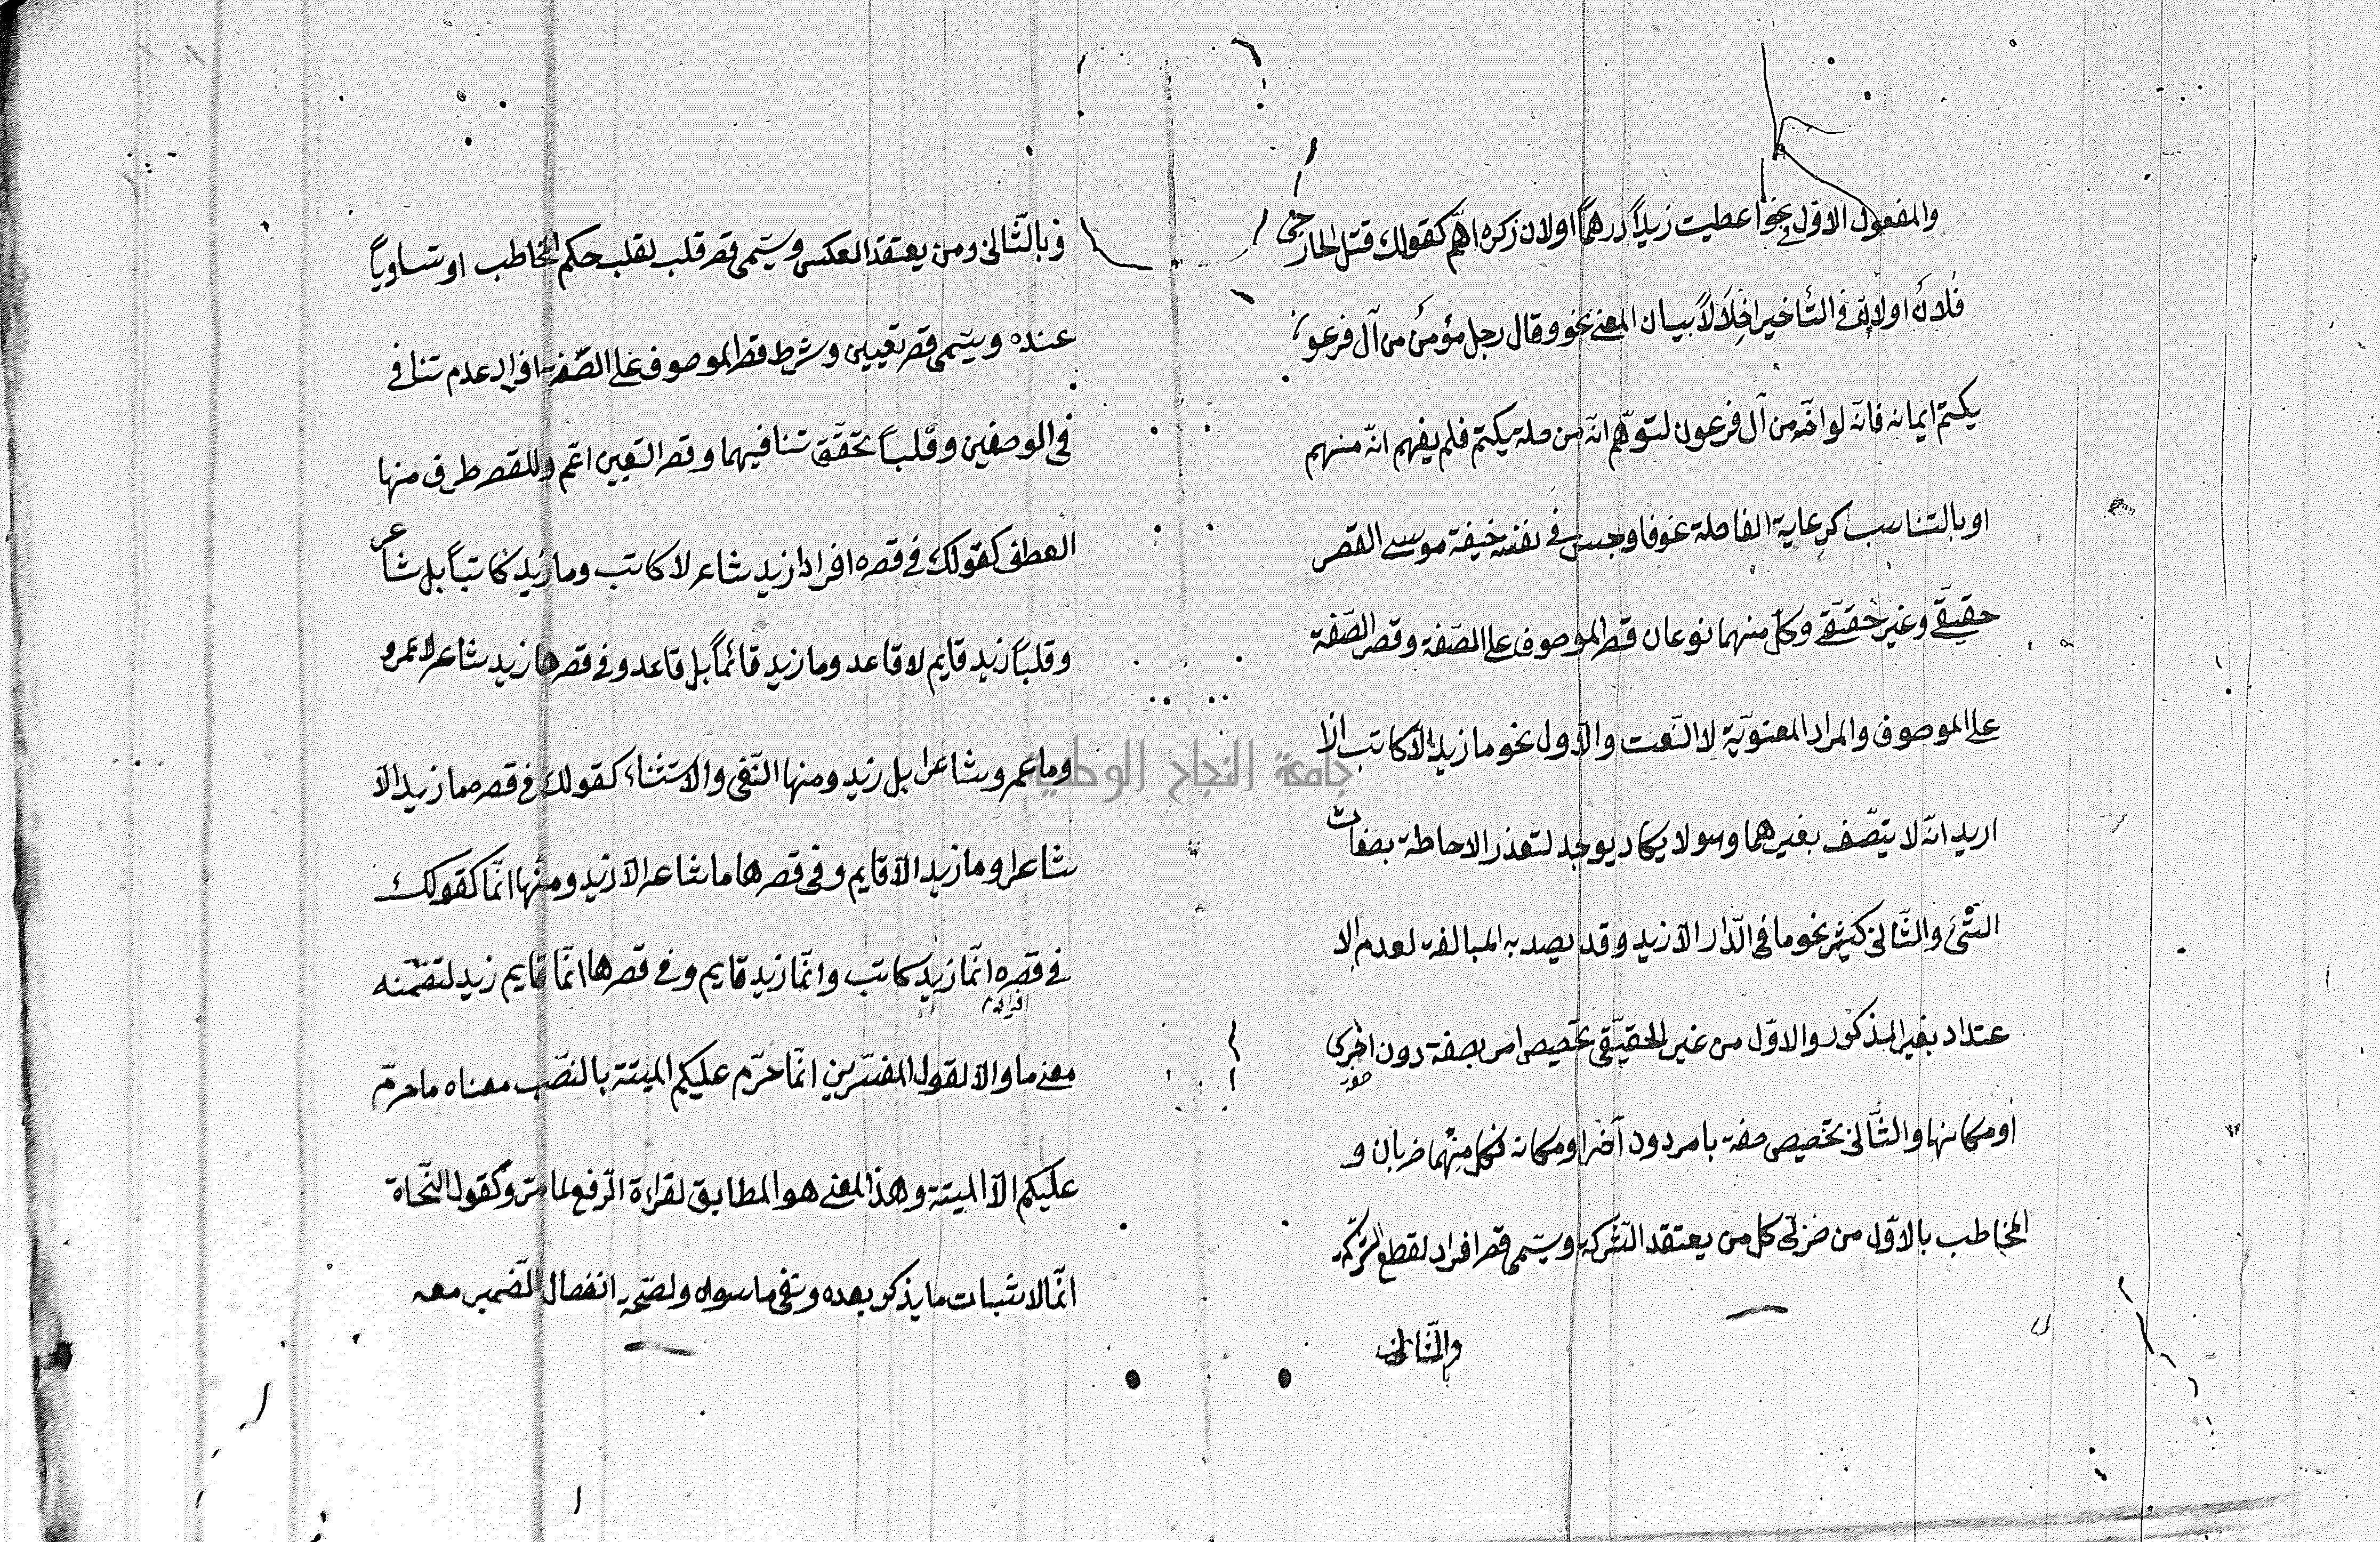 والمفعول الاوّل في نحو اعطيت زيداً درهماً او لان ذكره اهمّ كقولك قتل الخارجى
فلانٌ او لانّ فى التّأخير اخلالاً ببيان المعنى نحو وقال رجل مؤمنٌ من آل فرعون
يكتم ايمانه فانّه لو اخّر من آل فرعون لتوهّم انّه من صلة يكتم فلم يفهم انّه منهم
او بالتناسب كرعاية الفاصلة نحو فاوجس فى نفسه خيفة موسى القصر
حقيقىّ وغير حقيقىّ وكلّ منهما نوعان قصر الموصوف على الصّفة وقصر الصّفة
على الموصوف والمراد المعنويّة لا النّعت والاوّل نحو ما زيد الاّ كاتب اذا
اريد انّه لا يتّصف بغيرهما وهو لا يكاد يوجد لتعذر الاحاطة بصفات
الشّئ والثّانى كثير نحو ما فى الدّار الاّ زيد وقد يصد به المبالغة لعدم الا
عتداد بغير المذكور والاوّل من غير الحقيقى تخصيص امر بصفة دون اخرى
صفة
او مكانها والثّانى تخصيص صفة بامر دون آخر او مكانه فكل منهما ضربان و
المخاطب بالاوّل من ضربى كل من يعتقد الشّركة ويسمّى قصر افراد لقطع الشركة
وبالثانى
وبالثّانى ومن يعتقد العكس ويسّمى قصر قلب لقلب حكم المخاطب او تساوياً
عنده ويسّمى قصر تعيين وشرط قصر الموصوف على الصّفة افراد عدم تنافى
فى الوصفين وقلباً تحقّق تنافيهما وقصر التعيين اعّم وللقصر طرق منها
العطف كقولك فى قصره افرادا زيد شاعر لا كاتب وما زيد كاتباً بل شاعر
وقلباً زيد قايم لا قاعد وما زيد قائماً بل قاعد وفى قصرها زيد شاعر لا عمرو
وما عمرو شاعرا بل زيد ومنها النّفى والاستثناء كقولك فى قصره ما زيد الاّ
شاعر وما زيد الاّ قايم وفى قصرها ما شاعر الاّ زيد ومنها انّما كقولك
فى قصره انّما زيد كاتب وانّما زيد قايم وفى قصرها انّما قايم زيد لتضمّنه
افرادا
معنى ما والاّ لقول المفسّرين انّما حرّم عليكم الميتة بالنصّب معناه ما حرّم
عليكم الاّ الميتة وهذا المعنى هو المطابق لقراءة الرّفع لما مرّ وكقول النّحاة
انّما لاثبات ما يذكر بعده ونفى ما سواه ولصّحة انفصال الضّمير معه
جامعة النجاح الوطنية